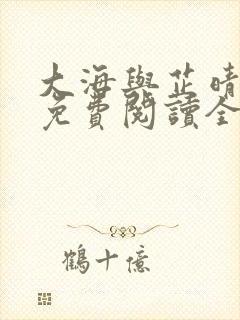 大海與芷晴
免費閱讀全
鶴十億